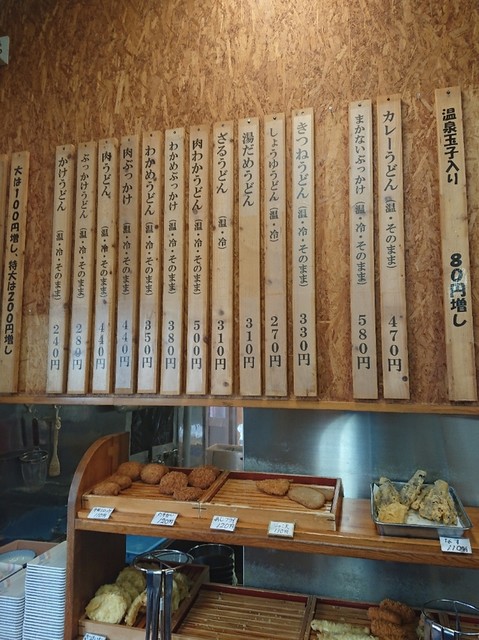 温泉玉子入り 80円増し
カレーうどん(温・そのまま) 470円
まかないぶっかけ(温・冷・そのまま) 580円
きつねうどん(温・冷・そのまま) 330円
しょうゆうどん(温・冷) 270円
湯だめうどん 310円
ざるうどん(温・冷) 310円
肉わかうどん(温・冷・そのまま) 500円
わかめぶっかけ(温・冷・そのまま) 380円
わかめうどん(温・冷・そのまま) 350円
肉ぶっかけ(温・冷・そのまま) 440円
肉うどん(温・冷・そのまま) 440円
ぶっかけうどん(温・冷・そのまま) 280円
かけうどん(温・冷・そのまま) 240円
大は100円増し、特大は200円増し
120円
120円
110円
なす
110円